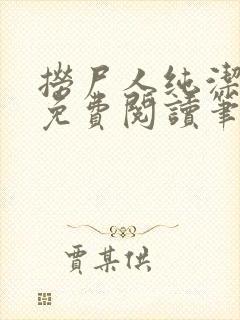 撈尸人純潔
免費閱讀筆
賈某供